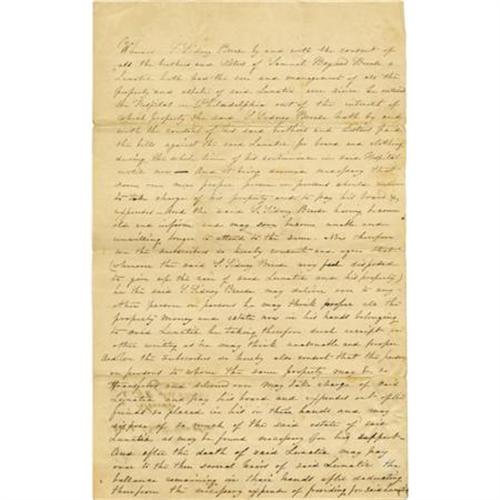 Whereas S. Sidney Breese by and with the consent of
all the brothers and sisters of Samuel Bayard Breese a
Lunatic hath had the care and management of all the
property and estate of said Lunatic ever since he entered
the Hospital in Philadelphia out of the interest of
which property the said S. Sidney Breese hath by and
with the consent of his said brothers and sisters paid
the bills against the said Lunatic for board and clothing
during the whole time of his continuance in said Hospital
until now — And it being deemed necessary that
some one or more proper person or persons should
to take charge of his property and to pay his board &
expenses And the said S. Sidney Breese having become
old and infirm and may soon become unable and
unwilling longer to attend to the same Now therefore
we the subscribers do hereby consent and agree that
(whenever the said S. Sidney Breese may feel disposed
to give up the care of said Lunatic and his property)
he the said S. Sidney Breese may deliver over to any
other person or persons he may think proper all the
property money and estate now in his hands belonging
to said Lunatic he taking therefor such receipt or
other writing as he may think reasonable and proper
And we the subscribers do hereby also consent that the person
or persons to whom the same property may be so
transferred and delivered over may take charge of said
Lunatic and pay his board and expenses out of the
funds so placed in his or their hands and may
dispose of so much of the said estate of said
Lunatic as may be found necessary for his support
And after the death of said Lunatic may pay
over to the then several heirs of said Lunatic the
ballance remaining in their hands after deducting
therefrom the necessary expenses of providing for said Lunatic